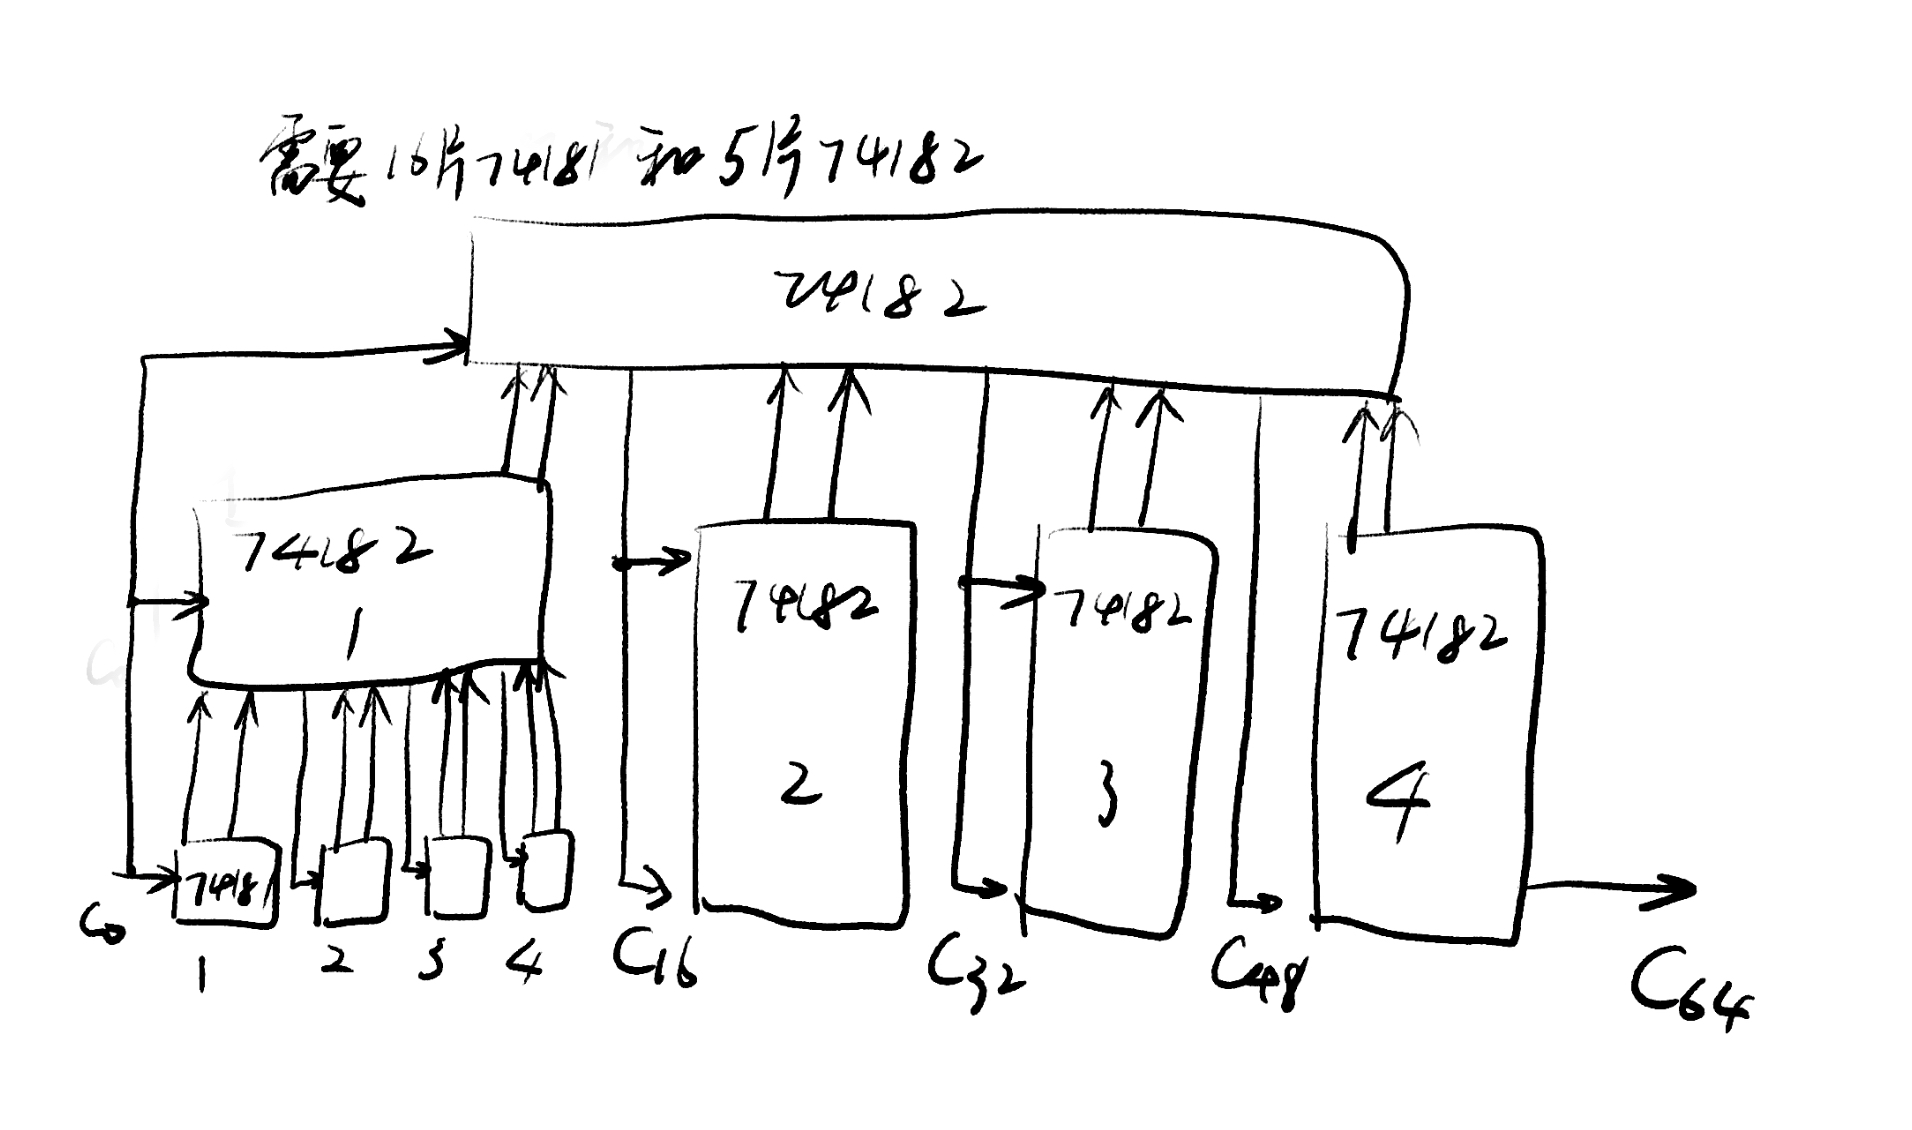 需要16片74181和5片74182
74182
74182
1
74182
2
74182
3
74182
4
74181
C0
1
2
3
4
C16
C32
C48
C64